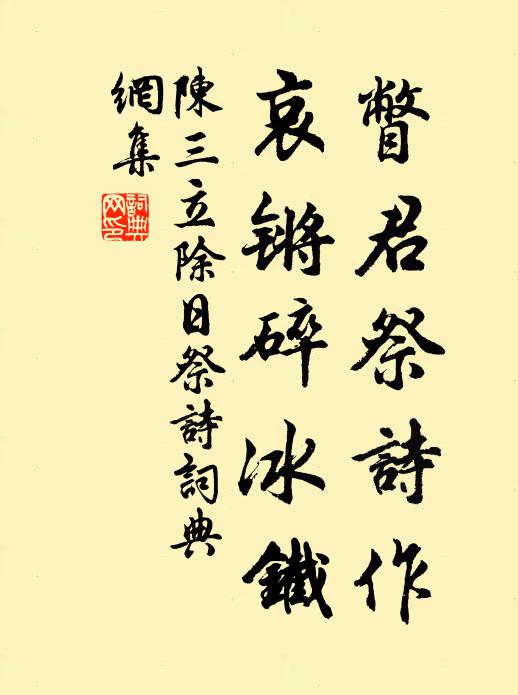 瞥君祭詩作
哀鏘碎冰鐵
陳三立除日祭詩詞典
網集
詞典
网印